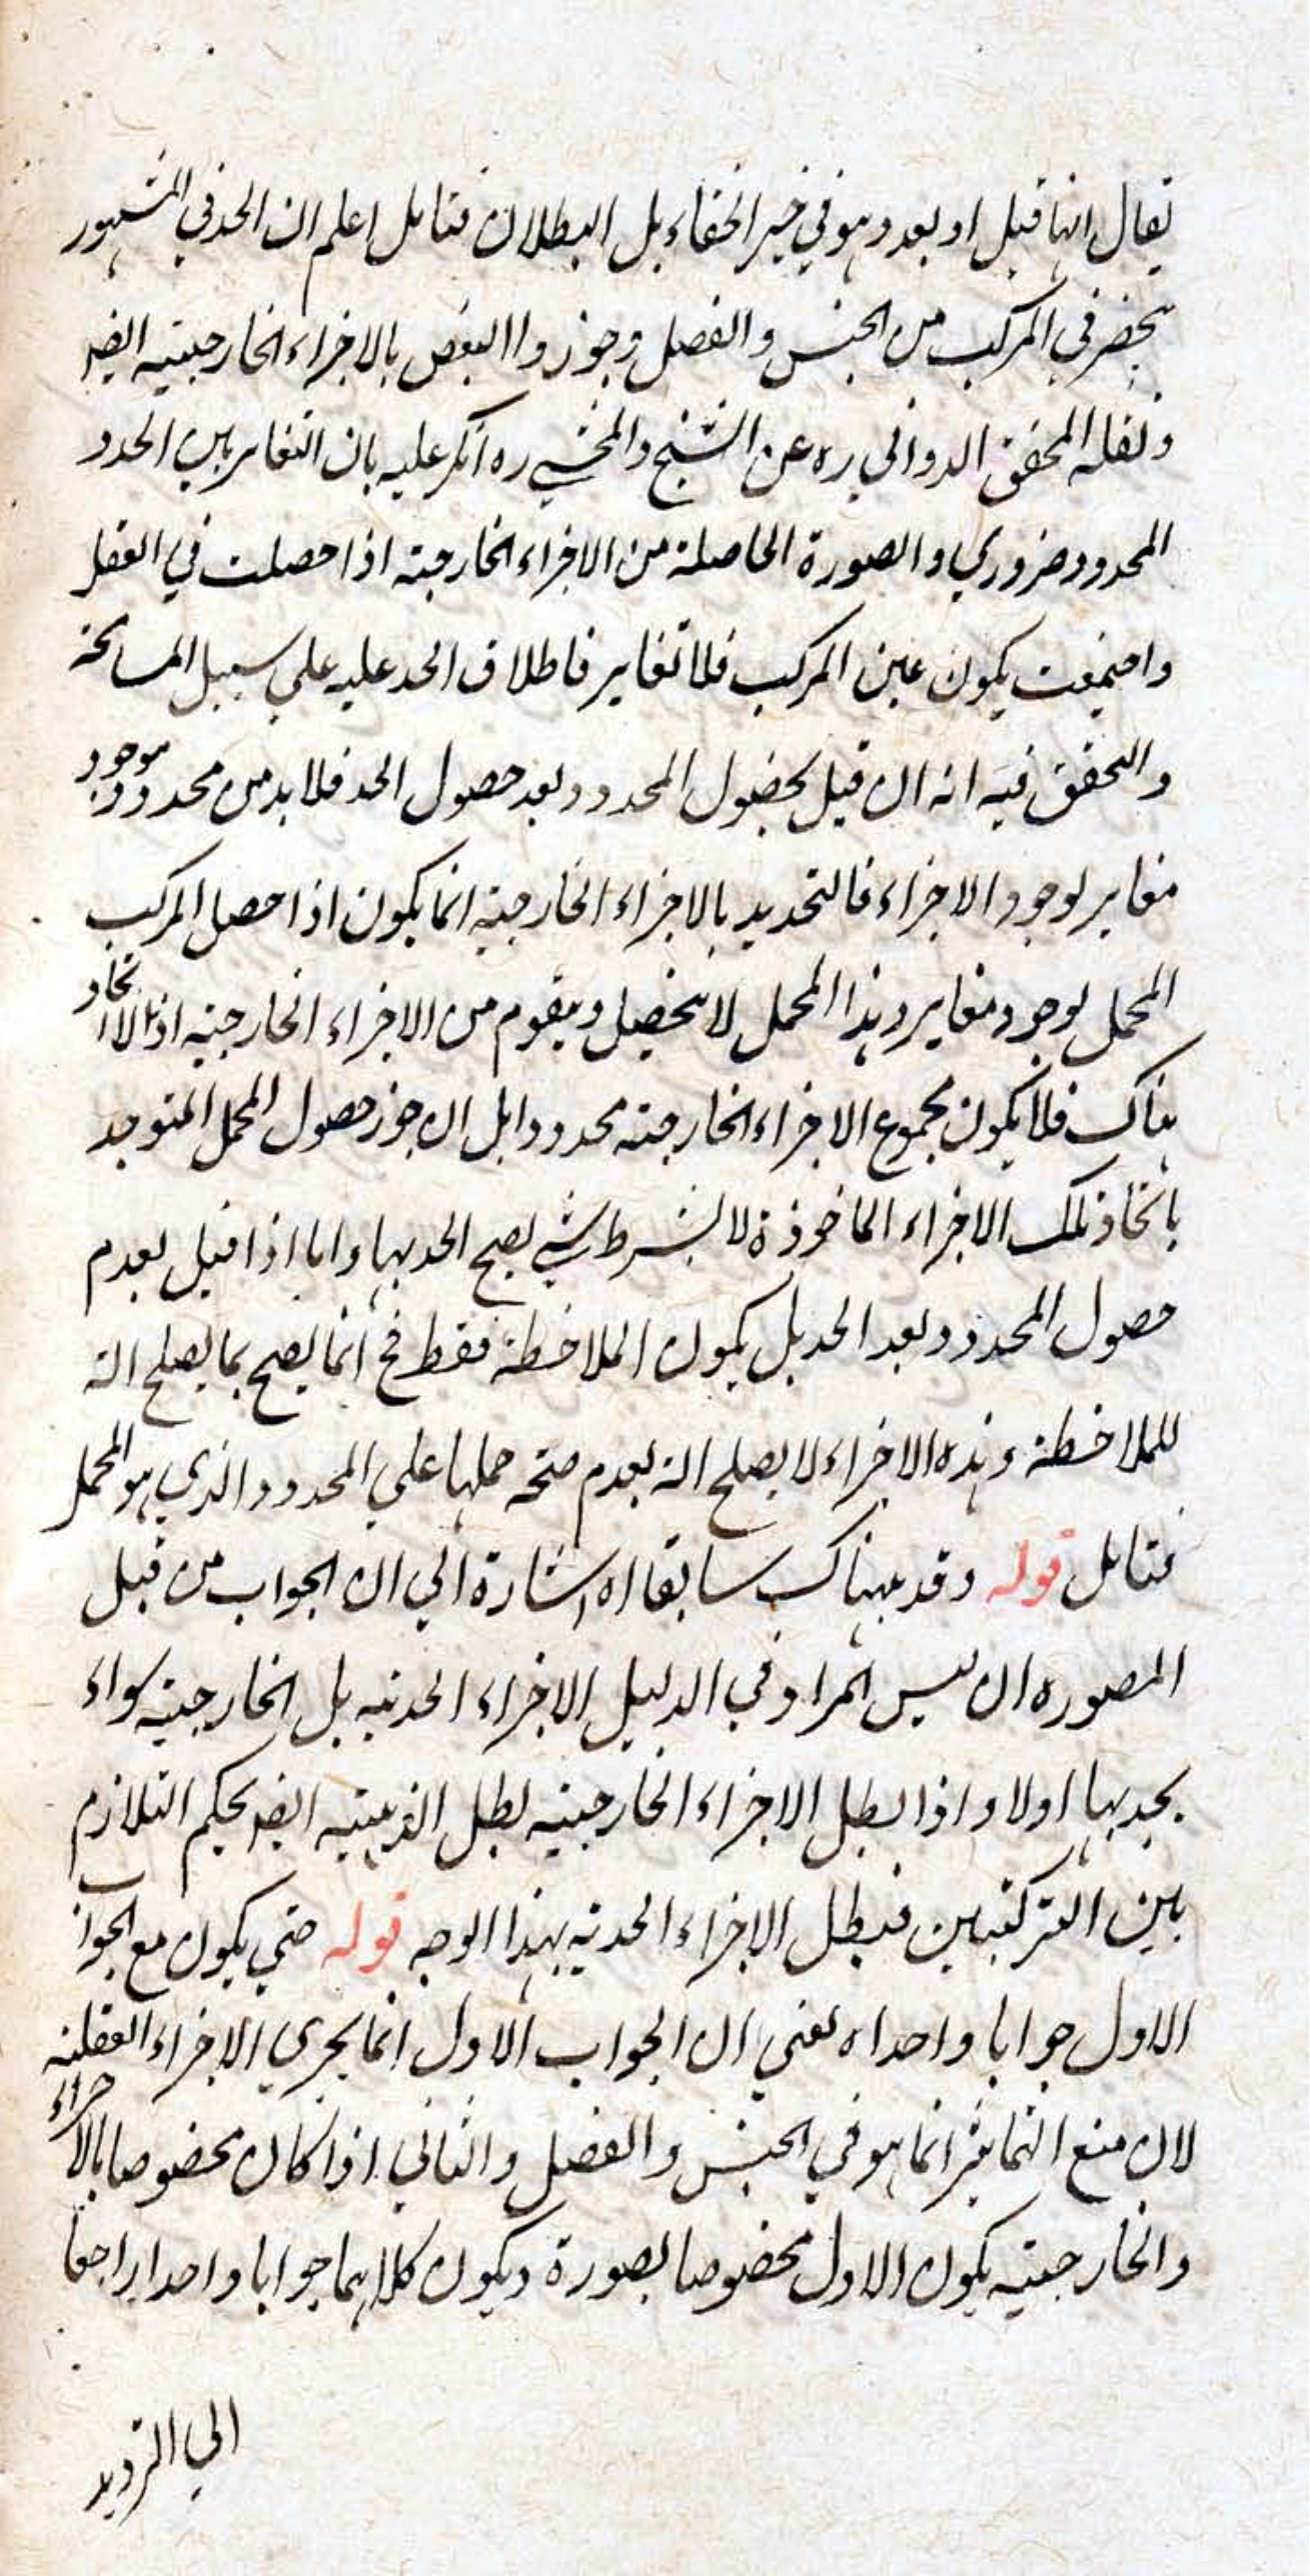 يقال انها قبل او بعد وهو في خير الخفاء بل البطلان فتامل اعلم ان الحد في المشهور
ينحصر في المركب من الجنس والفصل وجوزوا البعض بالاجزاء الخارجيته ايضا
ونقله المحقق الدواني ره عن الشيخ والمحشي ره انكر عليه بان التغاير بين الحدو
المحدود ضروري والصورة الحاصلة من الاجزاء الخارجية اذا حصلت في العقل
واجتمعت يكون عين المركب فلا تغاير فاطلاق الحد عليه علي سبيل المسامحة
والتحقق فيه انه ان قيل بحصول المحدود بعد حصول الحد فلا بد من محدود موجود
مغاير لوجود الاجزاء فالتحديد بالاجزاء الخارجية انما يكون اذا حصل المركب
المجمل بوجود مغاير وهذا المجمل لا يتحصل ويقوم من الاجزاء الخارجيه اذ لا اتحاد
هناك فلا يكون مجموع الاجزاء الخارجية محدودا بل ان جوز حصول المجمل المتوحد
باتحاد تلك الاجزاء الماخوذة لا بشرط شي يصح الحد بها واما اذا قيل بعدم
حصول المحدود بعد الحد بل يكون الملاحظة فقط فح انما يصح بما يصلح الة
للملاحظة وهذه الاجزاء لا يصلح الة لعدم صحة حملها علي المحدود الذي هو المجمل
فتامل قوله وقد بهناك سابقا اه اشارة الي ان الجواب من قبل
المصوره ان ليس المراد في الدليل الاجزاء الحديه بل الخارجية سواء
يحد بها اولا واذا بطل الاجزاء الخارجيه بطل الذهنيه ايضا بحكم التلازم
بين التركيبين فبطل الاجزاء الحديه بهذا الوجه قوله حتي يكون مع الجواب
الاول جوابا واحدا اه يعني ان الجواب الاول انما يجري الاجزاء العقلية
لان منع التمايز انما هو في الجنس والفصل والثاني اذا كان مخصوصا بالاجزاء
والخارجيته يكون الاول مخصوصا بصورة ويكون كلاهما جوابا واحدا راجعا
الي الترديد